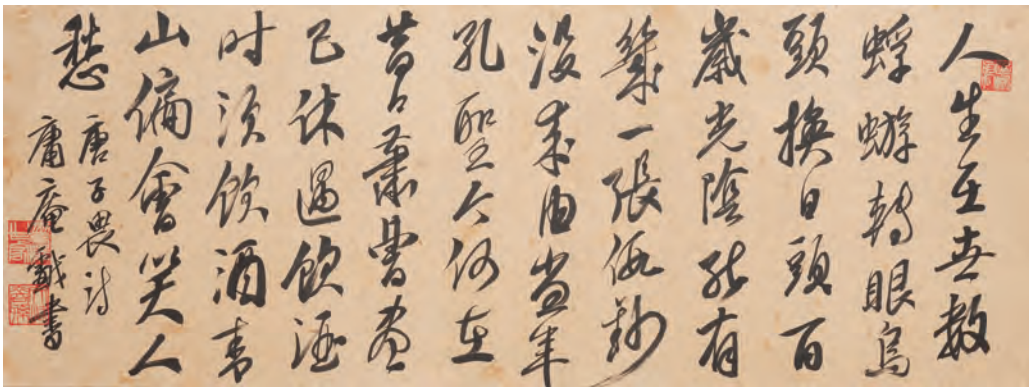 人生在世數
蜉蝣轉眼烏
頭換白頭百
歲光陰能有
幾一張假鈔
沒來由當年
孔聖今何在
昔日蕭曹盡
已休遇飲酒
時須飲酒青
山偏會笑人
愁
唐子畏詩
庸庵戲書